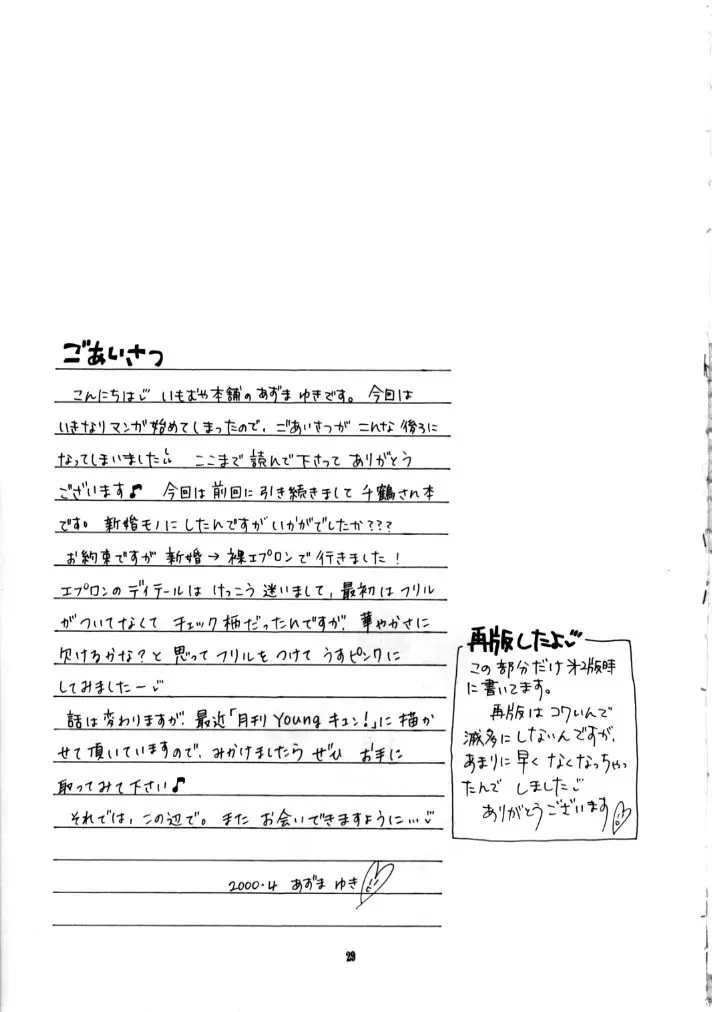 ごあいさつ
こんにちは いもむや本舗の あずま ゆきです。 今回は
いきなりマンガ始めてしまったので、ごあいさつが こんな後ろに
なってしまいました ここまで 読んで下さって ありがとう
ございます♪ 今回は前回に引き続きまして 千鶴さん本
です。新婚モノにしたんですがいかがでしたか???
お約束ですが 新婚→裸エプロンで行きました!
エプロンの ディテールは けっこう 迷いまして、最初はフリル
がついてなくて チェック柄だったんですが、華やかさに
欠けるかな?と 思って フリルをつけて うすピンクに
してみましたー
話は変わりますが、最近「月刊 Young キュン!」に 描か
せて頂いていますので、みかけましたら ぜひ お手に
取ってみて下さい♪
それでは、この辺で。また お会いできますように…
2000.4 あずま ゆき
再版したよ
この部分だけ第2版時
に書いてます。
再版は コワいんで
滅多に しないんですが、
あまりに 早く なくなっちゃっ
たんで しました
ありがとうございます
29